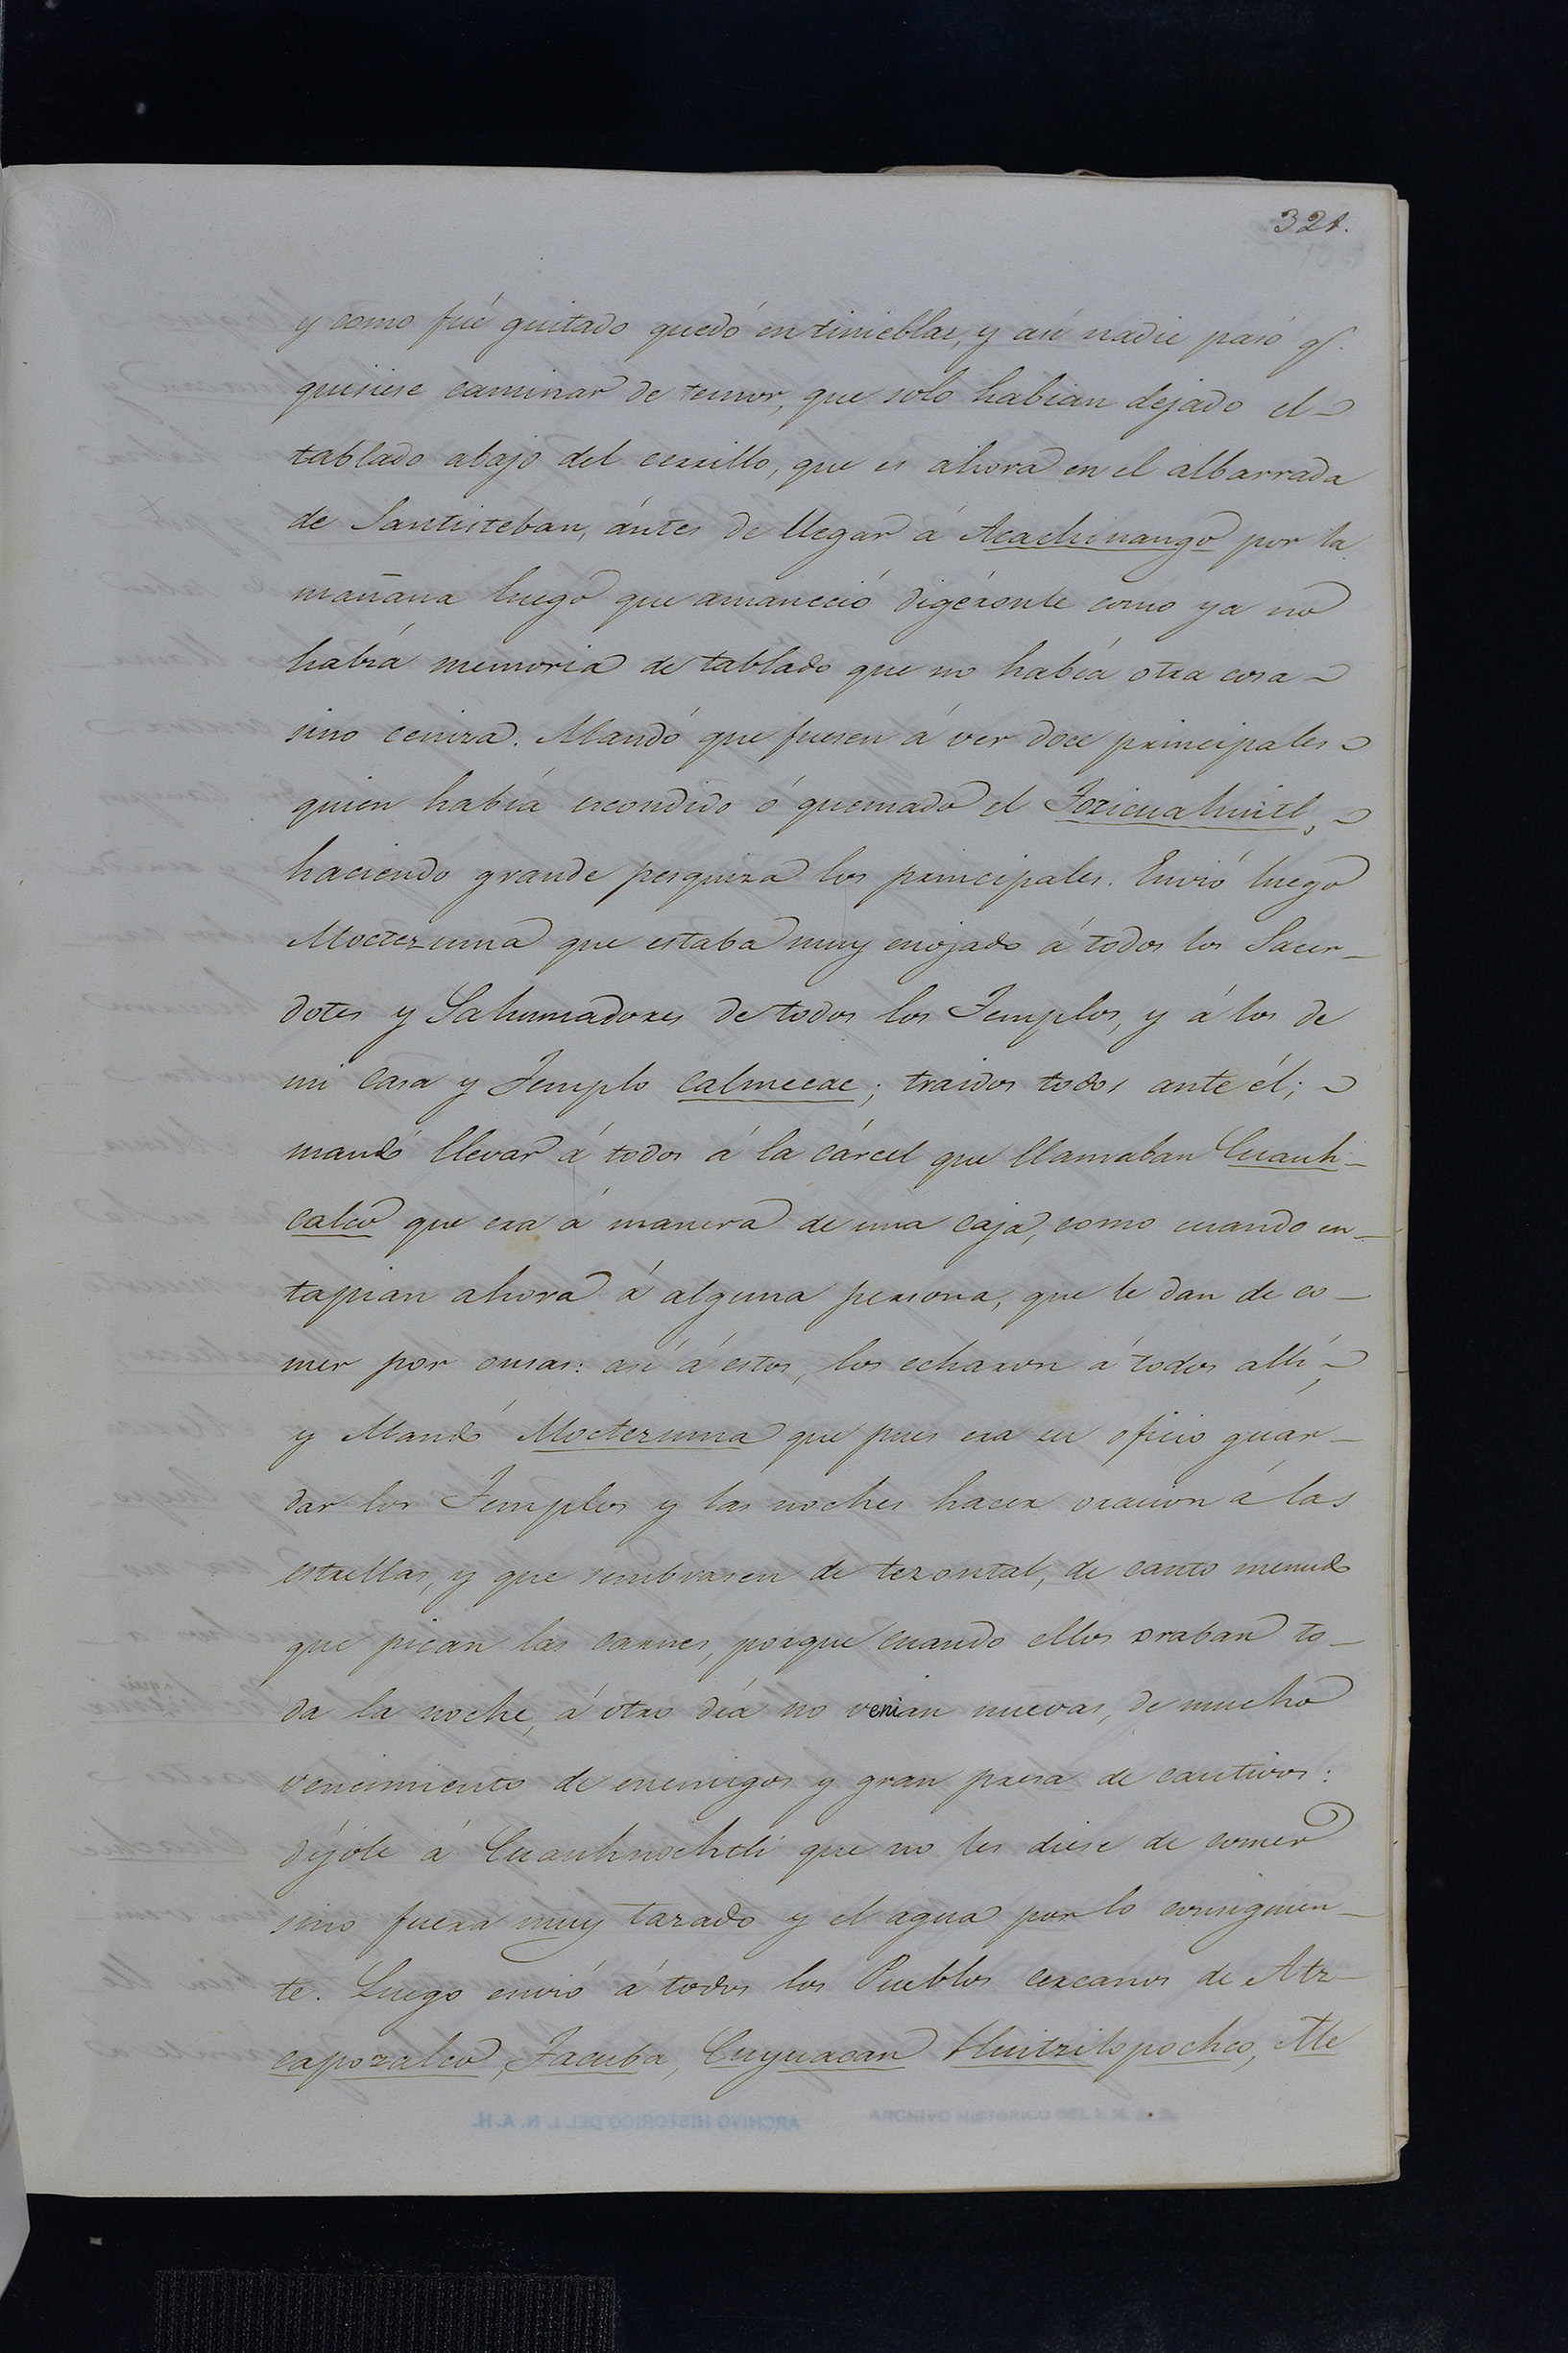 321.
y como fué quitado quedó en tinieblas, y asi nadie pasó q.
quisiese caminar de temor, que solo habian dejado el
tablado abajo del cerrillo, que es ahora en el albarrada
de Santisteban, ántes de llegar á Acachinango por la
mañana luego que amaneció digéronle como ya no
había memoria de tablado que no había otra cosa
sino ceniza. Mandó que fuesen á ver doce principales
quien había escondido ó quemado el Tozicuahuitl,
haciendo grande pesquiza los principales. Envió luego
Moctezuma que estaba muy enojado á todos los Sacer-
dotes y Sahumadores de todos los Templos, y á los de
mi casa y Templo Calmecac; traidos todos ante él;
mandó llevar á todos á la cárcel que llamaban Cuauh-
calco que era á manera de una caja, como cuando en-
tapian ahora á alguna persona, que le dan de co-
mer por onsas: asi á estos, los echaron á todos alli,
y Mandó Moctezuma que pues era su oficio guar-
dar los Templos y las noches hacer oracion á las
estrellas, y que sembrasen de tezontal, de canto menudo
que pican las carnes, porque cuando ellos oraban to-
da la noche, á otro día no venian nuevas, de mucho
vencimiento de enemigos y gran presa de cautivos:
díjole á Cuauhnochtli que no les diese de comer
sino fuera muy tazado y el agua por lo consiguien-
te. Luego envió á todos los Pueblos cercanos de Atz-
capozalco, Tacuba, Cuyuacan Huitzilopochco, Me
ARCHIVO HISTORICO DEL I. N. A. H.
ARCHIVO HISTORICO DEL I. N. A. H.